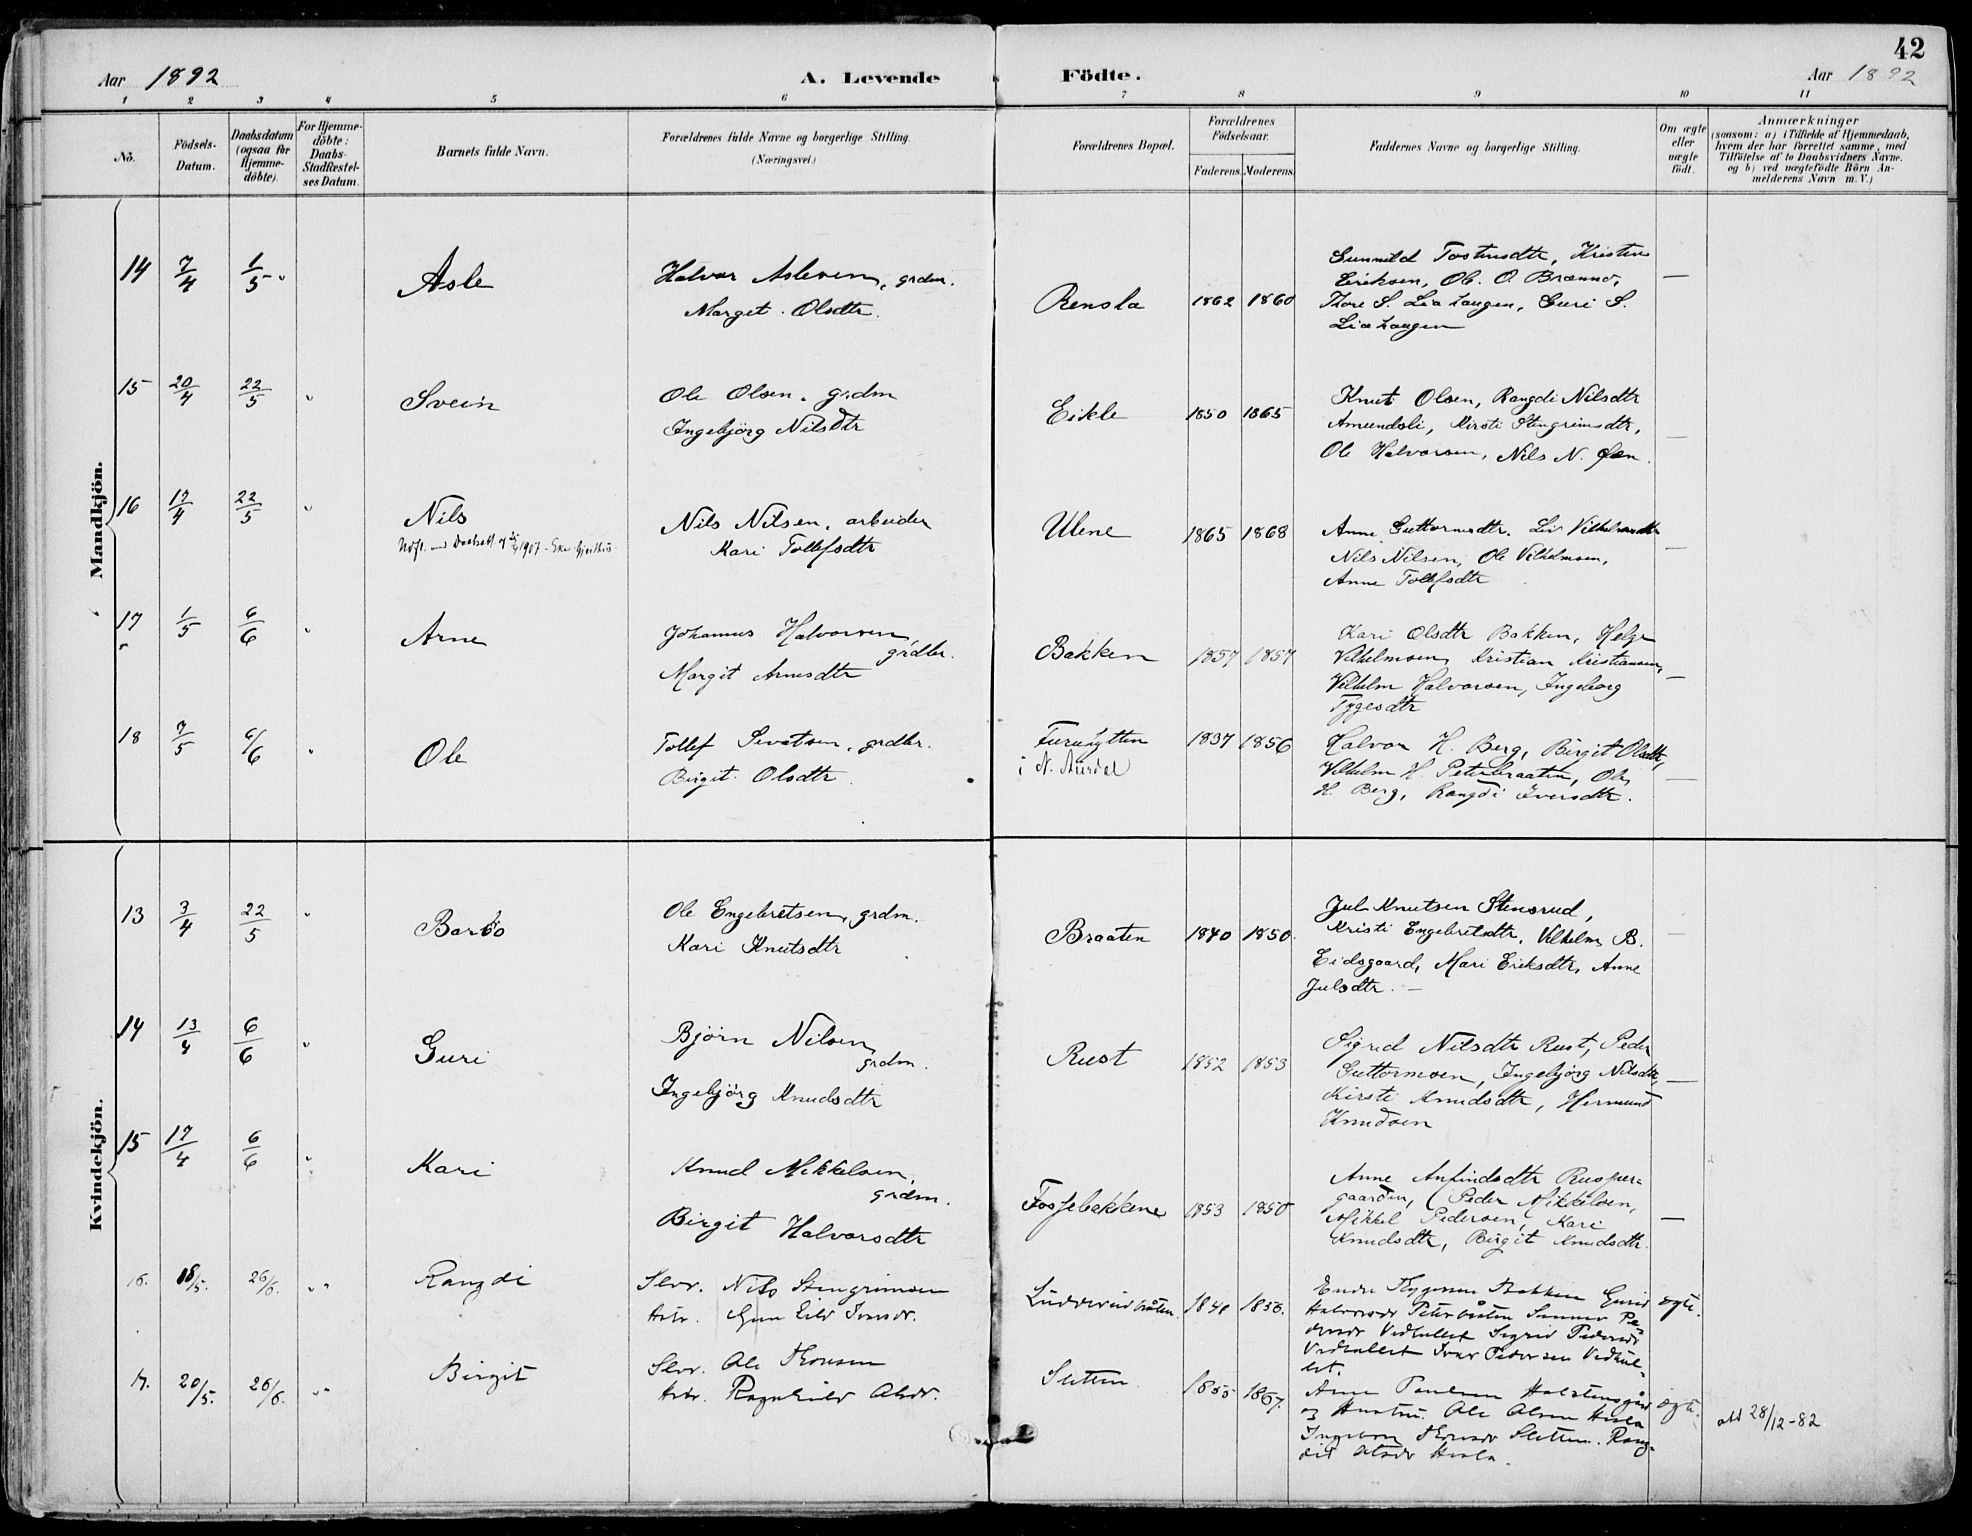 42
Aar 1892 A. Levende Födte. Aar 1892
1 2 3 4 5 6 7 8 9 10 11
No. Födsels-Datum. Daabsdatum (ogsaa for Hjemme-döbte). For Hjemme-döbte: Daabs-Stadfæstel-ses Datum. Barnets fulde Navn. Forældrenes fulde Navne og borgerlige Stilling. (Næringsvei.) Forældrenes Bopæl. Forældrenes Födselsaar. Faderens. Moderens. Faddernes Navne og borgerlige Stilling. Om ægte eller uægte födt. Anmærkninger (saasom: a) i Tilfælde af Hjemmedaab, hvem der har forrettet samme, med Tilföielse af to Daabsvidners Navne, og b) ved uægtefödte Börn An-melderens Navn m.V.)
Mandkjön.
14 7/4 1/5 " Asle
Halvor Aslesen, grdm.
Marget Olsdtr.
Rensla 1862 1860
Gunnild Tostensdtr, Kristen
Eriksen, Ole O. Brænno,
Thore S. Liahaugen, Guri S.
Liahaugen
—
15 20/4 22/5 " Svein
Ole Olsen, grdm
Ingebjörg Nilsdtr
Eikle 1850 1865
Knut Olsen, Rangdi Nilsdtr
Amundsli, Kirsti Stengrimsdtr,
Ole Halvorsen, Nils N. Øen.
—
16 17/4 22/5 " Nils
1907
Nils Nilsen, arbeider
Kari Tollefsdtr
Ulene 1865 1868
Anne Guttormsdtr. Liv Vilhelmsdtr
Nils Nilsen, Ole Vilhelmsen,
Anne Tollefsdtr
—
17 1/5 6/6 " Arne
Johannes Halvorsen,
grdbr.
Margit Arnesdtr
Bakken 1857 1857
Kari Olsdtr Bakken, Helge
Vilhelmsen, Kristian Kristiansen,
Vilhelm Halvorsen, Ingeborg
Tygesdtr
—
18 7/5 6/6 " Ole
Tollef Sivatsen, grdbr.
Birgit Olsdtr.
Furuhytten
i N. Aurdal
1837 1856
Halvor H. Berg, Birgit Olsdtr,
Vilhelm H. Petersbraaten, Ole
H. Berg, Rangdi Iversdtr.
—
Kvindekjön.
13 3/4 22/5 " Barbo
Ole Engebretsen, grdm.
Kari Knutsdtr
Braaten 1840 1850.
Jul Knutsen Stensrud,
Kristi Engebretsdtr, Vilhelm B.
Eidsgaard, Mari Eriksdtr, Anne
Julsdtr. —
—
14 13/4 6/6 " Guri
Bjørn Nilsen,
grdm.
Ingebjörg Knudsdtr
Rust 1852 1853
Sigrid Nilsdtr Rust, Peder
Guttormsen, Ingebjörg Nilsdtr,
Kirsti Knudsdtr, Hermund
Knudsen
—
15 17/4 6/6 " Kari
Knud Mikkelsen,
grdm.
Birgit Halvorsdtr
Fossebakkene 1853 1850
Anne Anfindsdtr Rusper-
gaarden, Peder Mikkelsen,
Mikkel Pedersen, Kari
Knudsdtr, Birgit Knudsdtr.
—
16. 18/5. 26/6. " Rangdi
Selvr. Nils Stengrimsen
Hstr. Gunhild Ivarsdr.
1848 1856.
Endre Thygesen Bakken Guri
Halvorsdr Petersbråten Gunnar Pe-
dersdr Vidhalset Sigrid Pedersdr
Vidhalset Ivar Pedersen Vidhal-
set.
ægte.
17. 20/5. 26/6. " Birgit
Selvr. Ole Thorsen
Hstr. Ragnhild Olsdr.
Sletten 1855 1857.
Arne Paulsen
og Hustru. Ole Olsen Hesla
Thorsdr Sletten. Rang-
did Olsdr Hesla.
ægte.
28/12-82